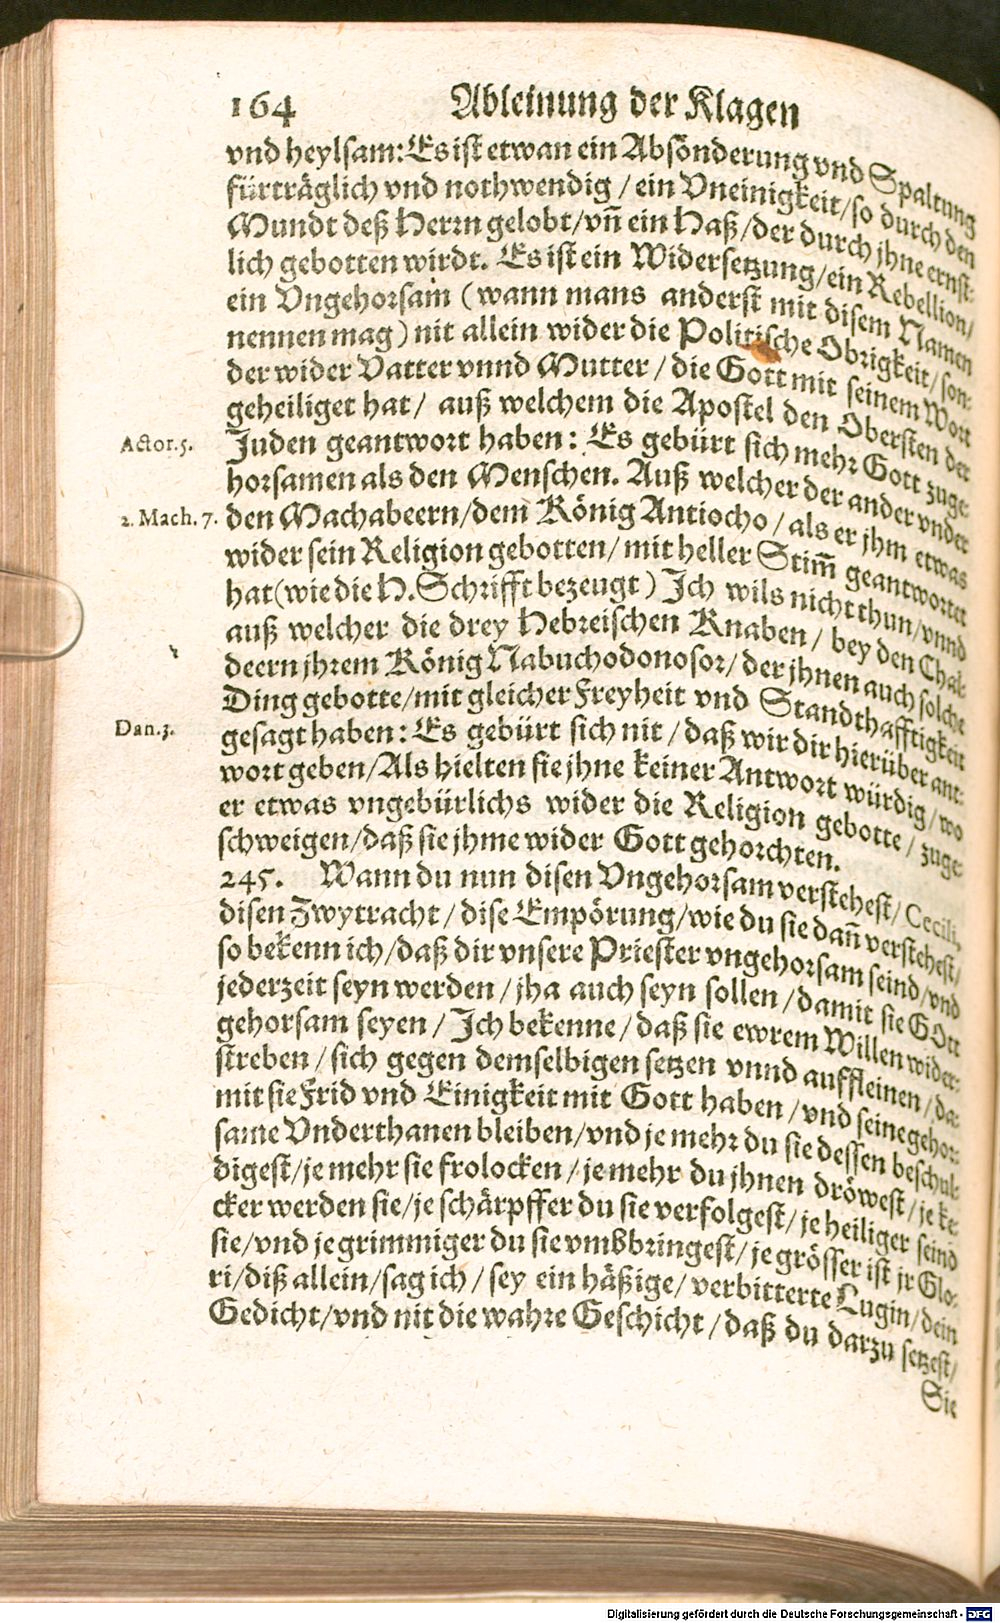 164 Ableinung der Klagen
vnd heylsam: Es ist etwan ein Absönderung vnd Spaltung
fürträglich vnd nothwendig / ein Vneinigkeit / so durch den
Mundt deß Herrn gelobt / vñ ein Haß / der durch jhne ernst-
lich gebotten wirdt. Es ist ein Widersetzung / ein Rebellion /
ein Vngehorsam (wann mans anderst mit disem Namen
nennen mag) nit allein wider die Politische Obrigkeit / son-
der wider Vatter vnnd Mutter / die Gott mit seinem Wort
geheiliget hat / auß welchem die Apostel den Obersten der
Actor. 5. Juden geantwort haben: Es gebürt sich mehr Gott zuge-
horsamen als den Menschen. Auß welcher der ander vnder
2. Mach. 7. den Machabeern / dem König Antiocho / als er jhm etwas
wider sein Religion gebotten / mit heller Stim̃ geantwortet
hat (wie die H. Schrifft bezeugt) Ich wils nicht thun / vnnd
auß welcher die drey Hebreischen Knaben / bey den Chal-
deern jhrem König Nabuchodonosor / der jhnen auch solche
Ding gebotte / mit gleicher Freyheit vnd Standthafftigkeit
Dan. 3. gesagt haben: Es gebürt sich nit / daß wir dir hierüber ant-
wort geben / Als hielten sie jhne keiner Antwort würdig / wo
er etwas vngebürlichs wider die Religion gebotte / zuge-
schweigen / daß sie jhme wider Gott gehorchten.
245. Wann du nun disen Vngehorsam verstehest / Cecili,
disen Zwytracht / dise Empörung / wie du sie dañ verstehest /
so bekenn ich / daß dir vnsere Priester vngehorsam seind / vnd
jederzeit seyn werden / jha auch seyn sollen / damit sie GOtt
gehorsam seyen / Ich bekenne / daß sie ewrem Willen wider-
streben / sich gegen demselbigen setzen vnnd auffleinen / da-
mit sie Frid vnd Einigkeit mit Gott haben / vnd seine gehor-
same Vnderthanen bleiben / vnd je mehr du sie dessen beschul-
digest / je mehr sie frolocken / je mehr du jhnen dröwest / je ke-
cker werden sie / je schärpffer du sie verfolgest / je heiliger seind
sie / vnd je grimmiger du sie vmbbringest / je grösser ist jr Glo-
ri / diß allein / sag ich / sey ein häßige / verbitterte Lugin / dein
Gedicht / vnd nit die wahre Geschicht / daß du darzu setzest /
Sie
Digitalisierung gefördert durch die Deutsche Forschungsgemeinschaft - DFG